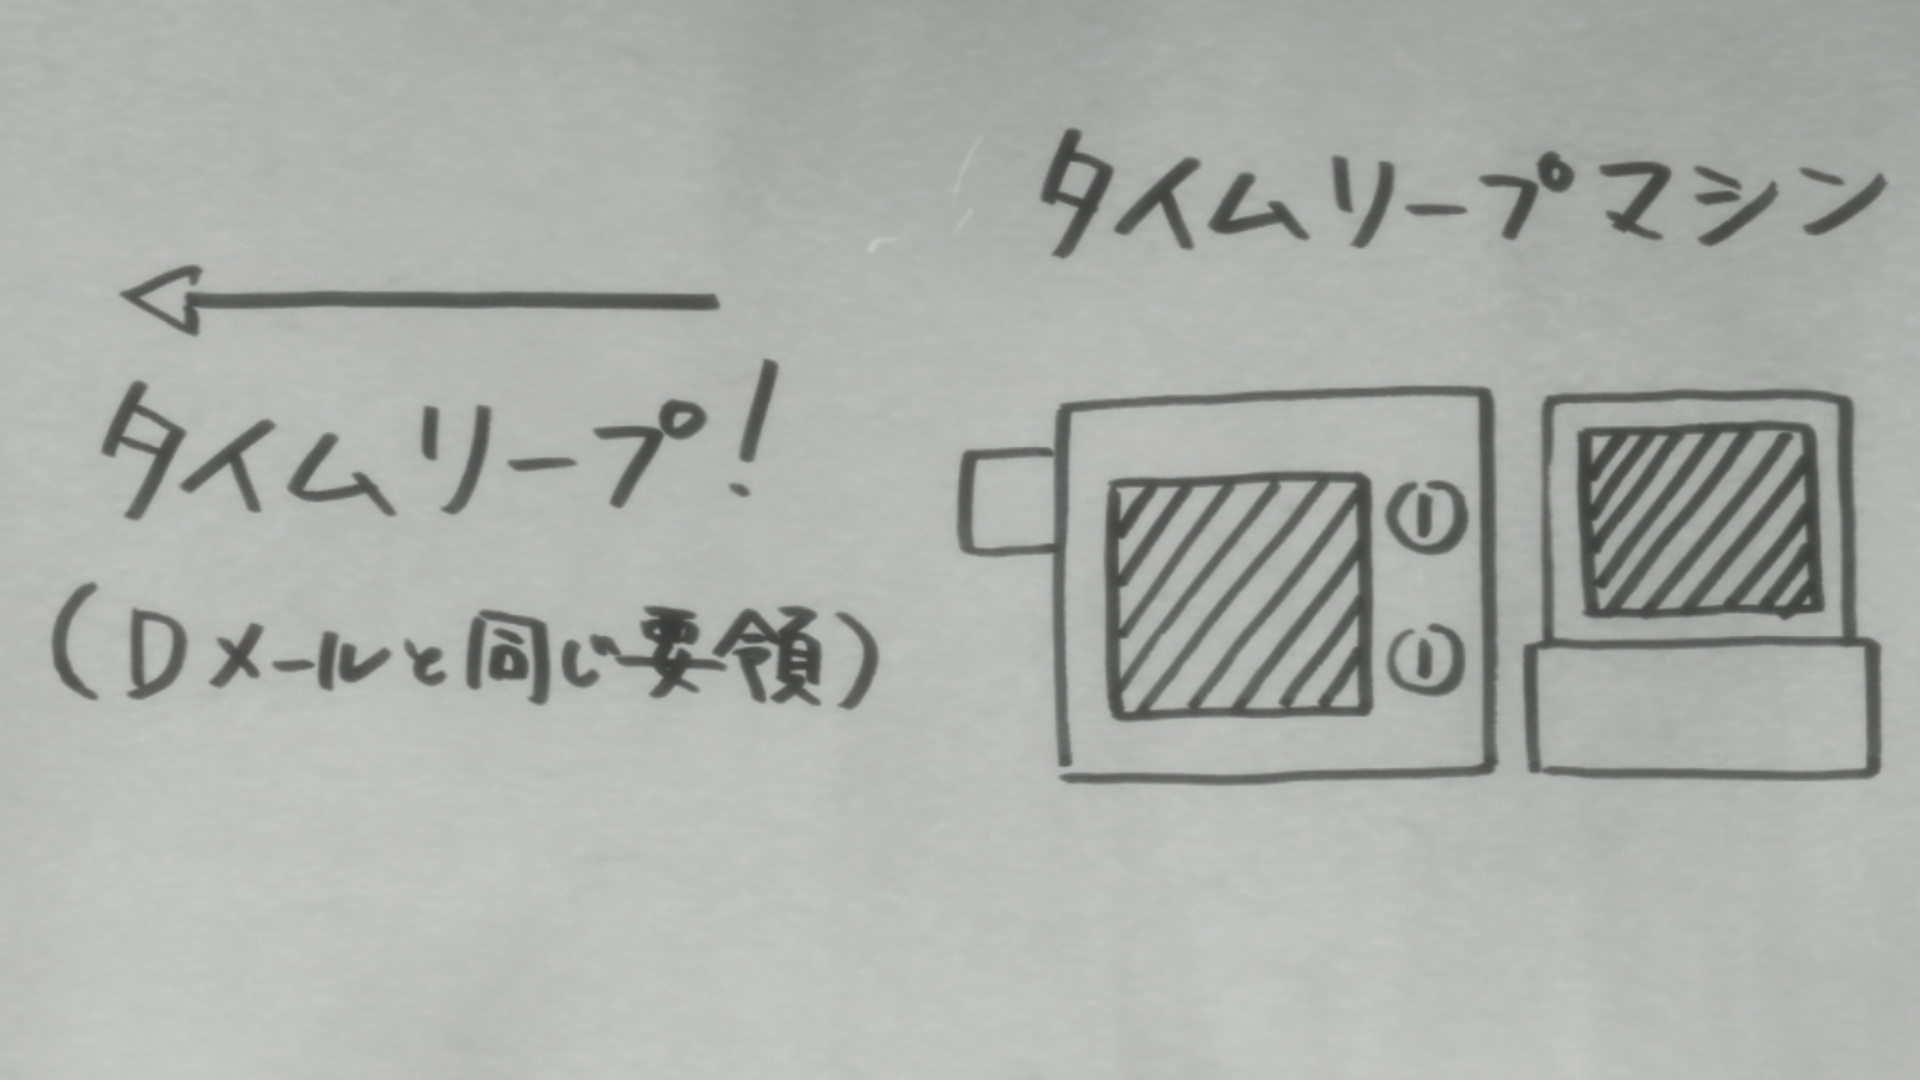 タイムリープマシン
タイムリープ!
(Dメールと同じ要領)